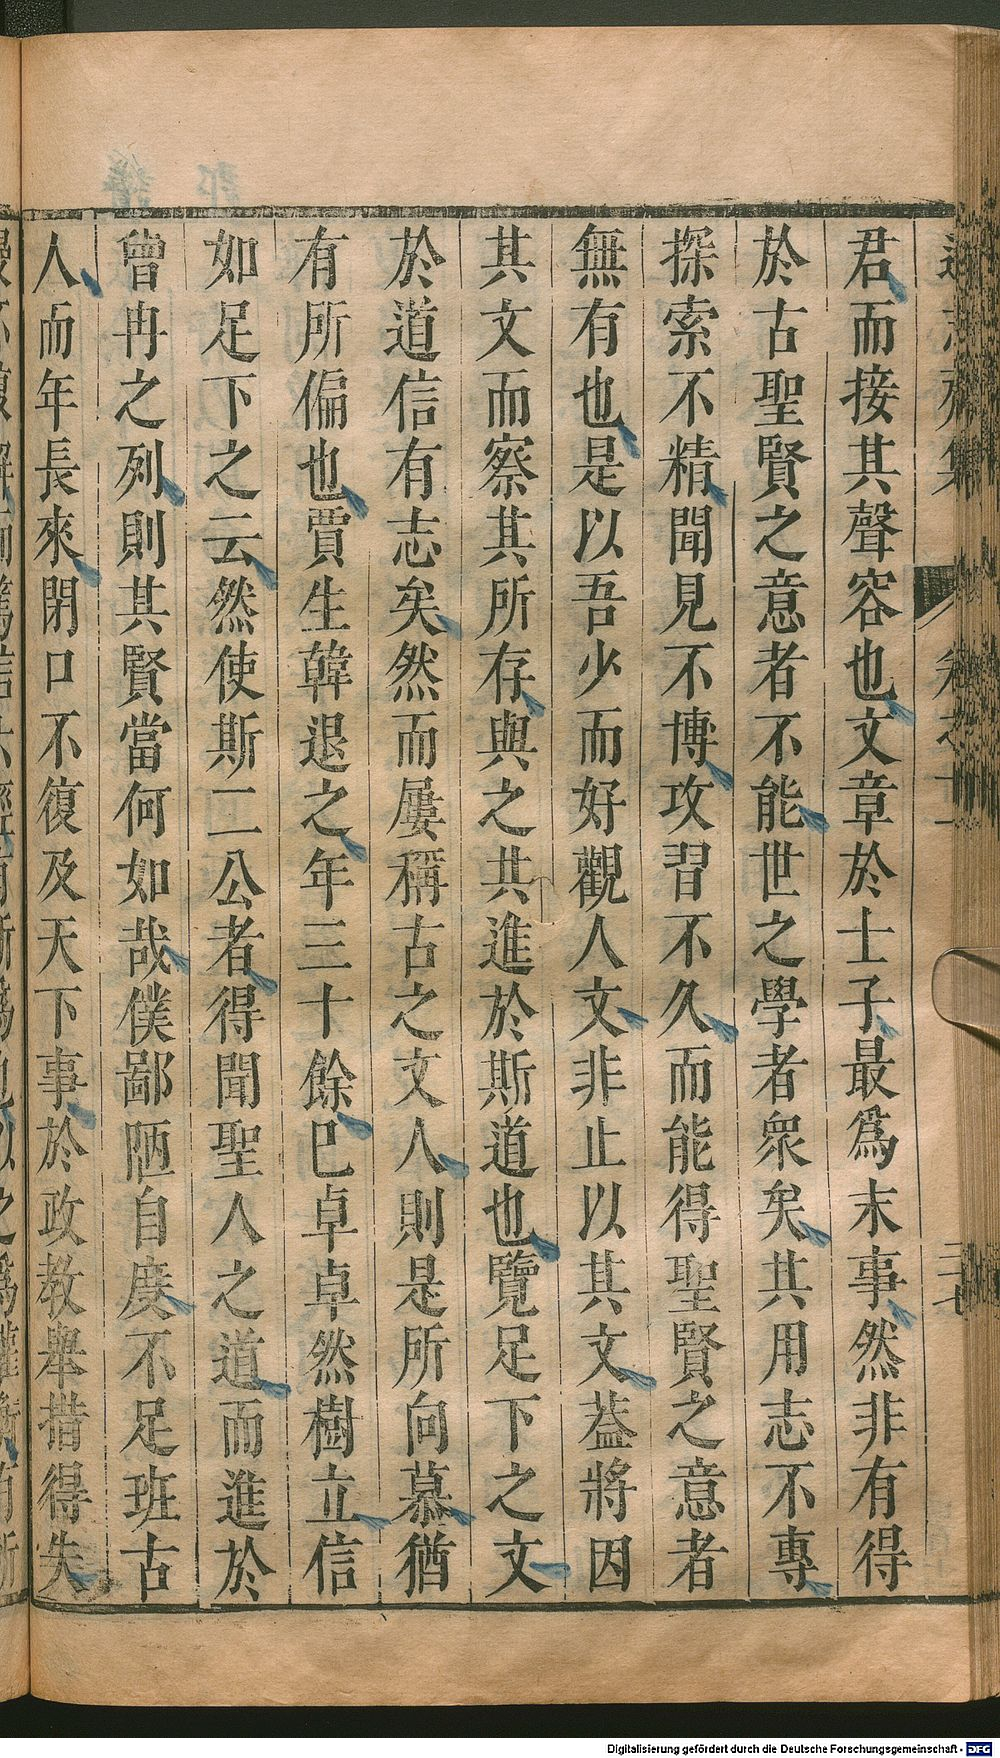 君而接其聲容也文章於士子最爲末事然非有得
於古聖賢之意者不能世之學者衆矣其用志不專
探索不精聞見不博攻習不久而能得聖賢之意者
無有也是以吾少而好觀人文非止以其文葢將因
其文而察其所存與之共進於斯道也覽足下之文
於道信有志矣然而屢稱古之文人則是所向慕猶
有所偏也賈生韓退之年三十餘巳卓卓然樹立信
如足下之云然使斯二公者得聞聖人之道而進於
曾冉之列則其賢當何如哉僕鄙陋自度不足班古
人而年長來閉口不復及天下事於政教舉措得失
Digitalisierung gefördert durch die Deutsche Forschungsgemeinschaft - DFG